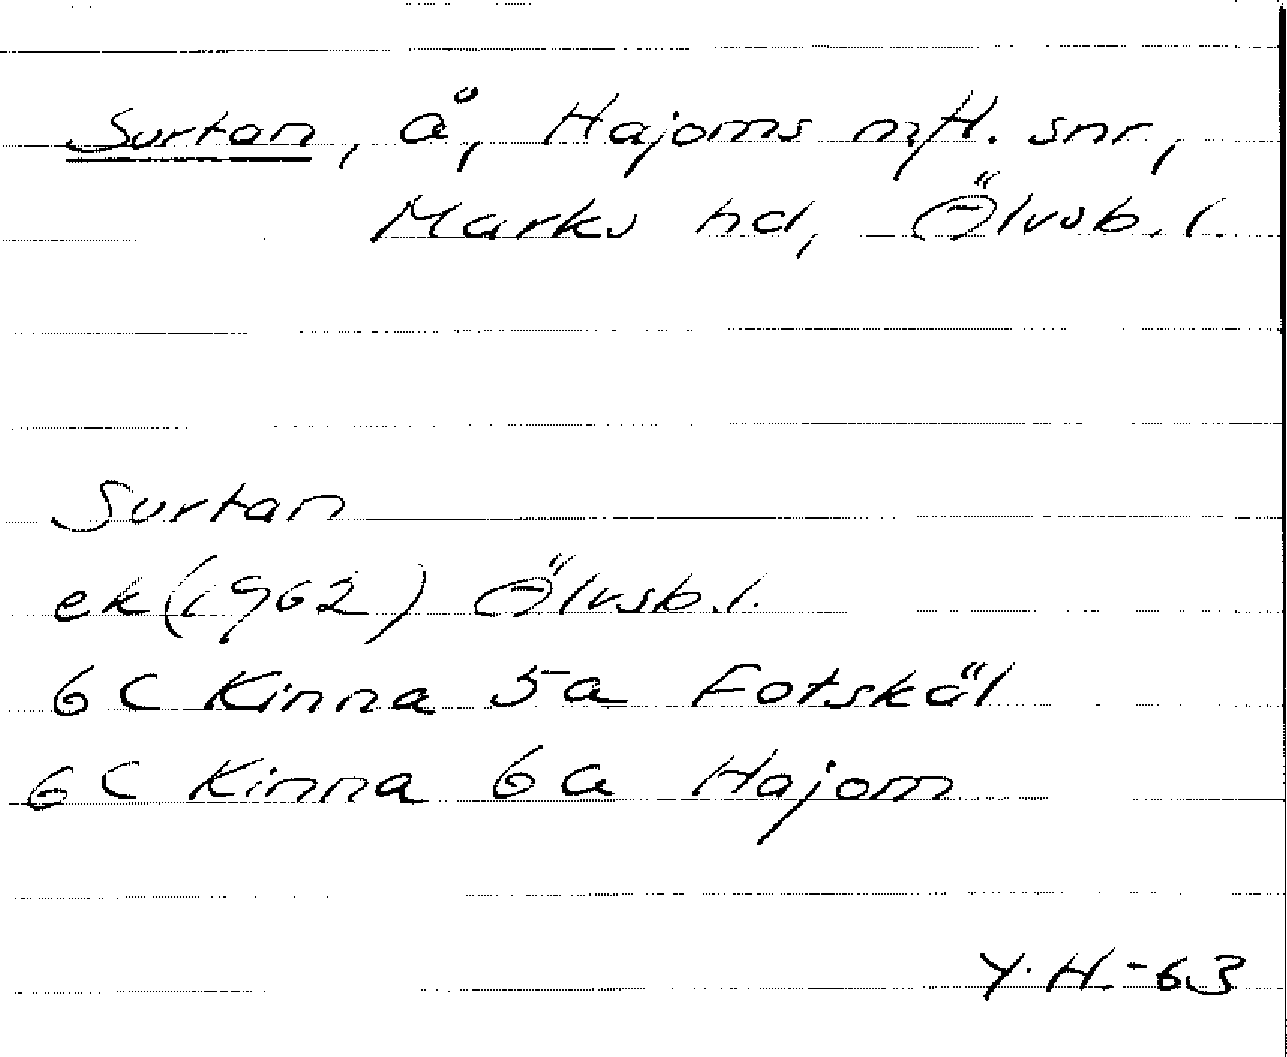 Surtan, å, Hajoms m.fl. snr,
Marks hd, Älvsb. l.
Surtan
ek (1962) Älvsb. l.
6C Kinna 5a Fotskäl
6C Kinna 6a Hajom
Y.H.-63